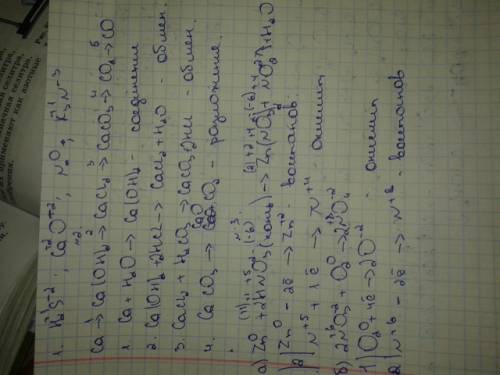 1. H₂⁺¹S⁻²; Ca⁺²O⁻²; N₂⁰; K₃⁺¹N⁻³
Ca →¹ Ca(OH)₂ →² CaCl₂ →³ CaCO₃ →⁴ CO₂ →⁵ CO
1. Ca + H₂O → Ca(OH)₂ - соединения
2. Ca(OH)₂ + 2HCl → CaCl₂ + H₂O - обмен.
3. CaCl₂ + H₂CO₃ → CaCO₃ + 2HCl - обмен.
4. CaCO₃ → CaO + CO₂ - разложение.
а) Zn⁰ + 2HNO₃ (конц) → Zn(NO₃)₂ + NO₂ + H₂O
2| Zn⁰ - 2ē → Zn⁺² восстанов.
2| N⁺⁵ + 1ē → N⁺⁴ окислит
б) 2NO₃⁻² + O₂⁰ → 2NO₄⁻²
1| O₂⁰ + 4ē → 2O⁻² окислит
2| N⁺⁶ - 2ē → N⁺⁸ - восстанов